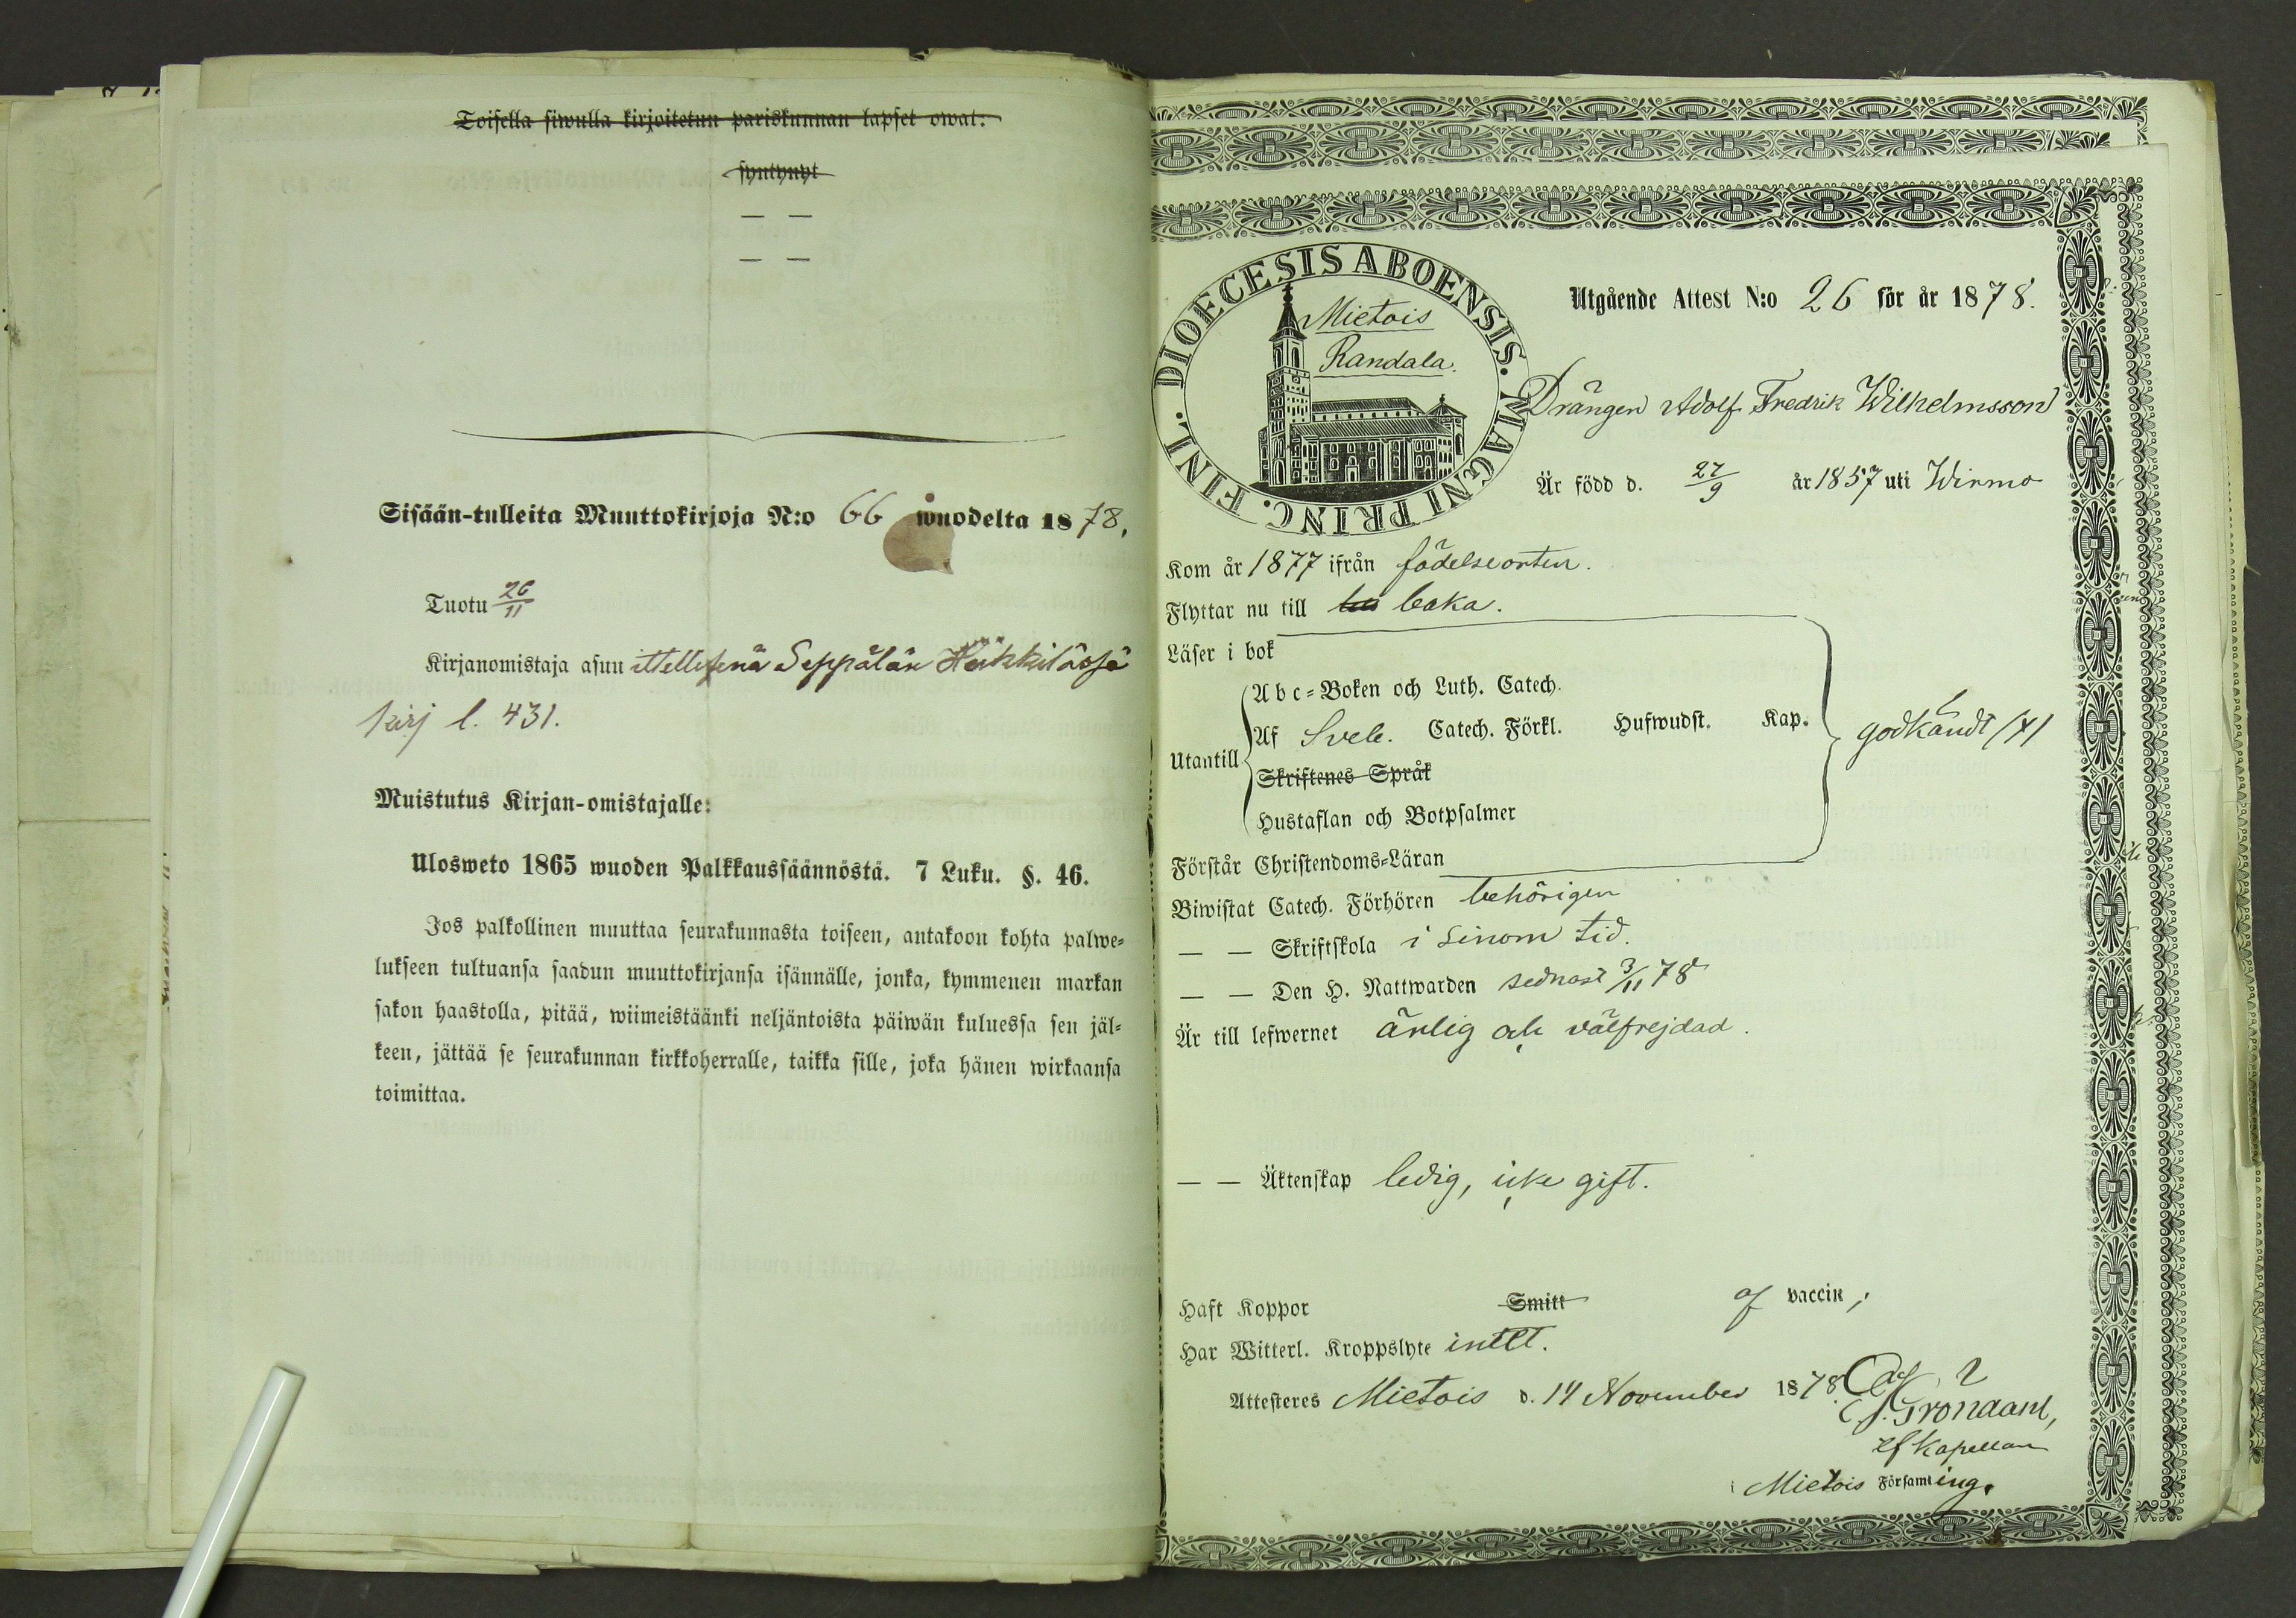 Toisella siwulla kirjoitetun pariskunnan lapset owat:
syntynyt
— —
— —
Sisään-tulleita Muuttokirjoja N:o 66 wuodelta 1878.
Tuotu 26/11
Kirjanomistaja asuu itellisenä Seppälän Heikkilässä
kirj l. 431.
Muistutus Kirjan-omistajalle:
Ulosweto 1865 wuoden Palkkaussäännöstä. 7 Luku. §. 46.
Jos palkollinen muuttaa seurakunnasta toiseen, antakoon kohta palwe-
lukseen tultuansa saadun muuttokirjansa isännälle, jonka, kymmenen markan
sakon haastolla, pitää, wiimeistäänki neljäntoista päiwän kuluessa sen jäl-
keen, jättää se seurakunnan kirkkoherralle, taikka sille, joka hänen wirkaansa
toimittaa.
FINL. DIOECESIS ABOENSIS. MAGNI PRINC.
Mietois
Randala.
Utgående Attest N:o 26 för år 1878.
Drängen Adolf Fredrik Wilhelmsson
Är född d. 27/9 år 1857 uti Wirmo
Kom år 1877 ifrån födelseorten.
Flyttar nu till baka.
Läser i bok
Utantill
Abc-Boken och Luth. Catech.
Af Sveb. Catech. Förkl. Hufwudst. Kap.
Skriftenes Språk
Hustaflan och Botpsalmer
godkändt /7/
Förstår Christendoms-Läran
Biwistat Catech. Förhören behörigen
— — Skriftskola i sinom tid.
— — Den H. Nattwarden sednast 3/11 78
Är till lefwernet ärlig och välfrejdad.
— — Äktenskap ledig, icke gift.
Haft Koppor Smitt af vaccin;
Har Witterl. Kroppslyte intet.
Attesteres Mietois d. 14 November 1878.
Grondahl,
Kapellan
Mietois Församling.